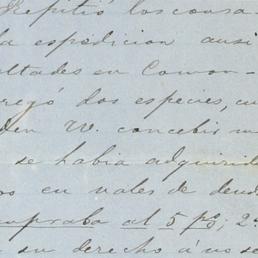 Repitió los consa
la espedicion ausi
ultades en Comon-
regó dos especies, cu
den W. concebir un
se habia adquirido
os en vales de deud
compraba al 5 p%; 2º
su derecho á no se